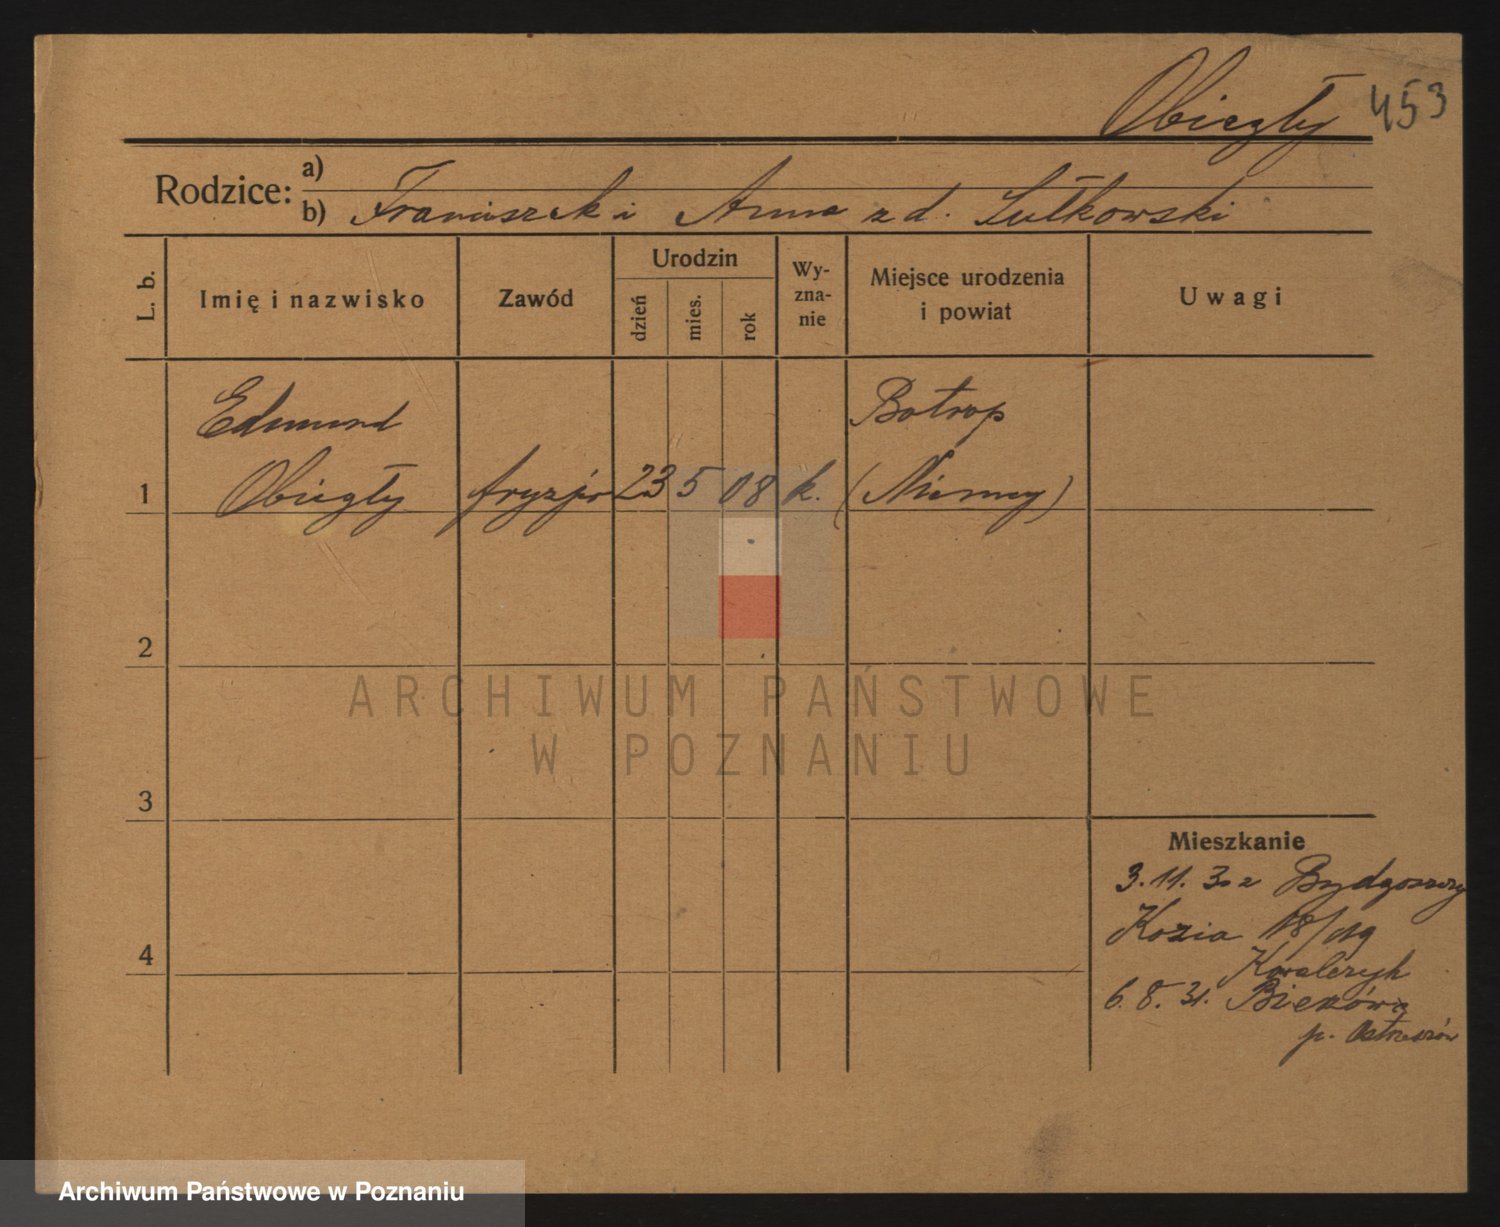 Obiegły 453
Rodzice:
a)
b) Franciszek i Anna z d. Sułkowski
L. b.
Imię i nazwisko
Zawód
Urodzin
dzień
mies.
rok
Wy-
zna-
nie
Miejsce urodzenia
i powiat
Uwagi
Edmund
Botrop
1 Obiegły fryzjer 23 5 08 k. (Niemcy)
2
3
4
ARCHIWUM PAŃSTWOWE
W POZNANIU
Mieszkanie
3.11.30 z Bydgoszczy
Kozia 18/19
Kowalczyk
6.8.31.
p. Ostrzeszów
Archiwum Państwowe w Poznaniu